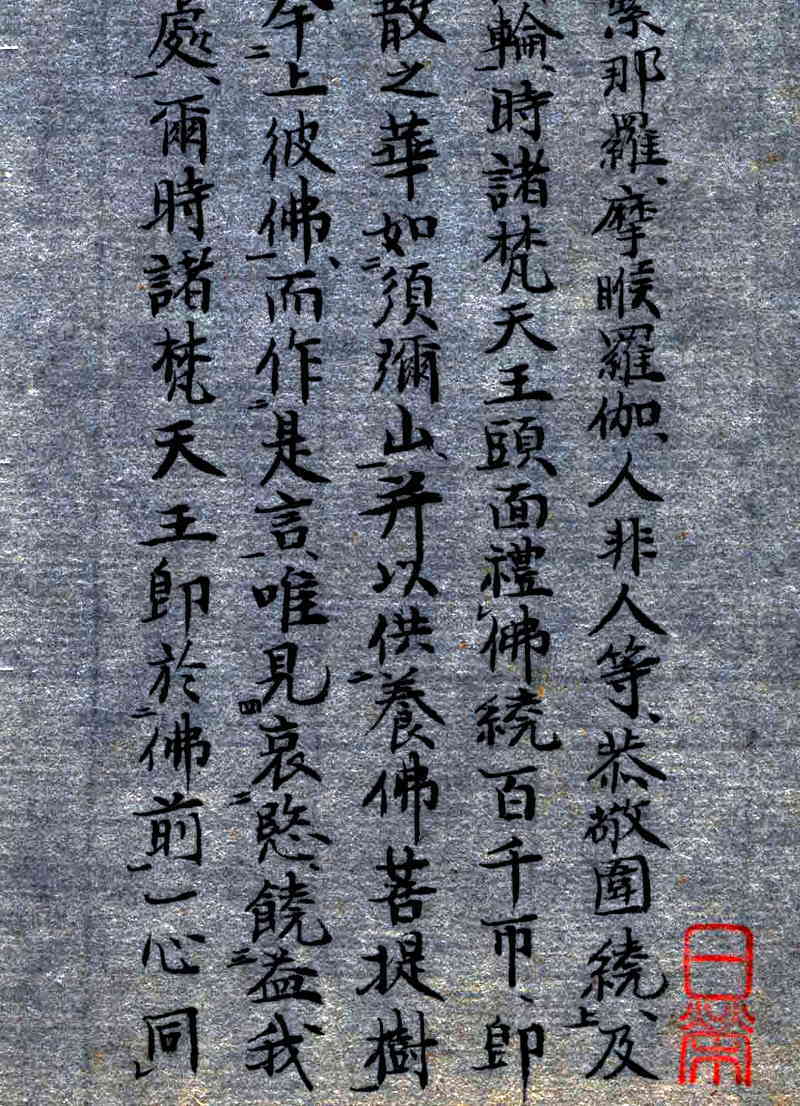 緊那羅、摩睺羅伽、人非人等、恭敬圍繞、及
輪、時諸梵天王頭面禮佛繞百千帀、即
散之華如須彌山、并以供養佛菩提樹
上彼佛、而作是言、唯見哀愍、饒益我
處、爾時諸梵天王即於佛前一心同